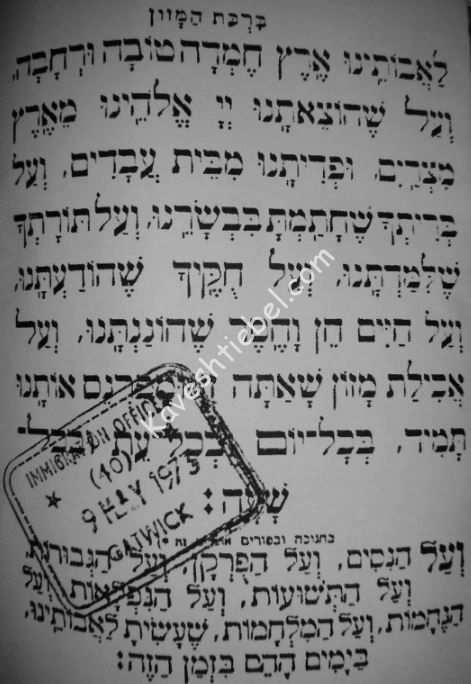 ברכת המזון
לַאֲבוֹתֵינוּ אֶרֶץ חֶמְדָּה טוֹבָה וּרְחָבָה.
וְעַל שֶׁהוֹצֵאתָנוּ יְיָ אֱלֹהֵינוּ מֵאֶרֶץ
מִצְרַיִם. וּפְדִיתָנוּ מִבֵּית עֲבָדִים. וְעַל
בְּרִיתְךָ שֶׁחָתַמְתָּ בִּבְשָׂרֵנוּ. וְעַל תּוֹרָתְךָ
שֶׁלִּמַּדְתָּנוּ. וְעַל חֻקֶּיךָ שֶׁהוֹדַעְתָּנוּ.
וְעַל חַיִּים חֵן וָחֶסֶד שֶׁחוֹנַנְתָּנוּ. וְעַל
אֲכִילַת מָזוֹן שָׁאַתָּה זָן וּמְפַרְנֵס אוֹתָנוּ
תָּמִיד. בְּכָל־יוֹם בְּכָל עֵת וּבְכָל־
שָׁעָה:
בחנוכה ובפורים זה
וְעַל הַנִּסִּים, וְעַל הַפֻּרְקָן, וְעַל הַגְּבוּרוֹת,
וְעַל הַתְּשׁוּעוֹת, וְעַל הַנִּפְלָאוֹת וְעַל
הַנֶּחָמוֹת, וְעַל הַמִּלְחָמוֹת, שֶׁעָשִׂיתָ לַאֲבוֹתֵינוּ,
בַּיָּמִים הָהֵם בַּזְּמַן הַזֶּה:
IMMIGRATION OFFICER
(40)
9 MAY 1973
GATWICK
Kaveshtiebel.com